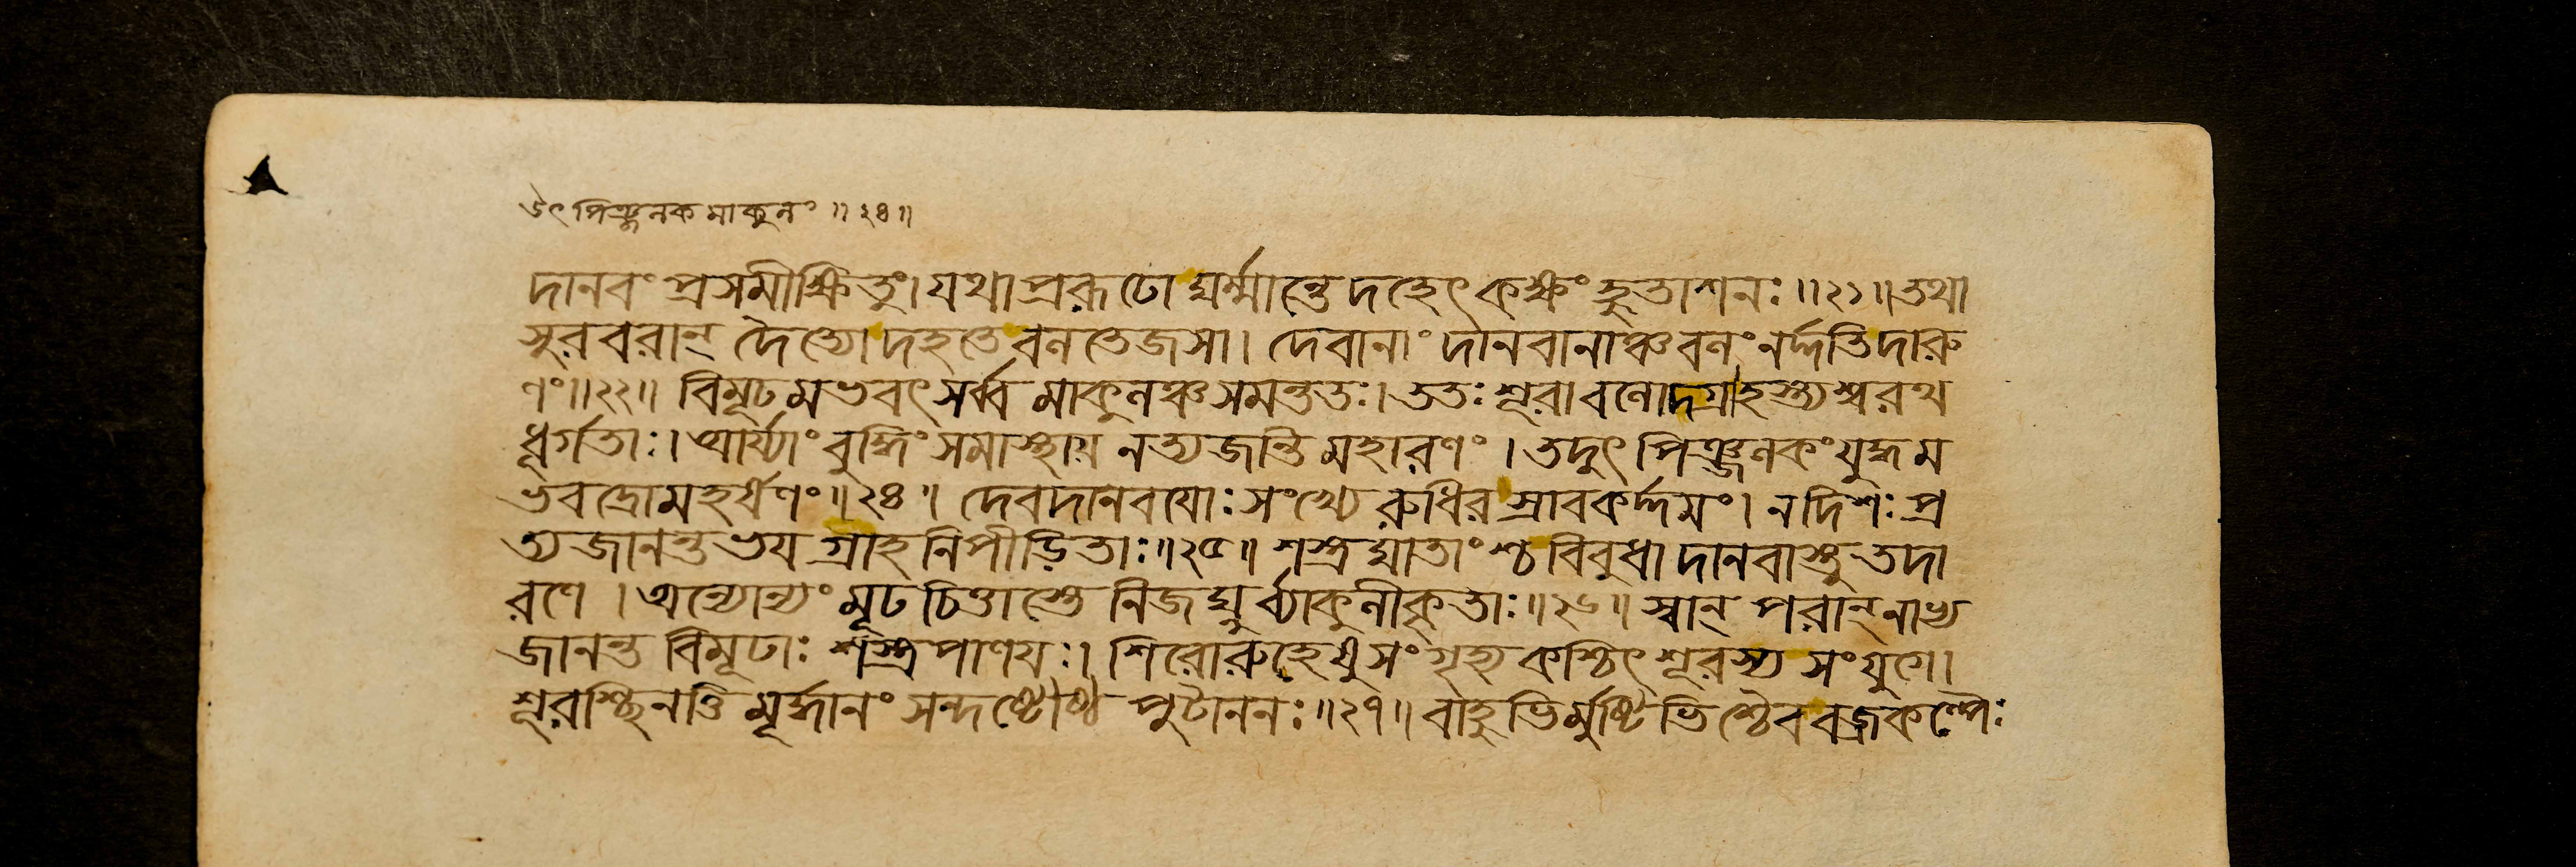 উৎপিঞ্জনকমাকুনং ॥২৪॥
দানবং প্রসমীক্ষিতুং। যথা প্ররূঢো ঘর্ম্মান্তে দহেৎ কক্ষং হুতাশনঃ ॥২১॥ তথা
সুরবরান্ দৈত্যো দহতে বনতেজসা। দেবানাং দানবানাঞ্চ বনং নর্দ্দতি দারু
ণং॥২২॥ বিমূঢমভবৎ সর্ব্ব মাকুনঞ্চ সমন্ততঃ। ততঃ শূরা বনোদগ্রা হস্ত্যশ্বরথ
ধূর্গতাঃ। আর্য্যাং বুদ্ধিং সমাস্থায় নত্যজন্তি মহারণং । তদুৎপিঞ্জনকং যুদ্ধম
ভবদ্রোমহর্ষণং॥২৪॥ দেবদানবযোঃ সংখ্যে রুধিরস্রাবকর্দ্দমং। ন দিশঃ প্র
ত্যজানন্ত ভযগ্রাহনিপীড়িতাঃ॥২৫॥ শস্ত্রঘ্মাতাংশ্চ বিবুধা দানবাস্তু তদা
রণে । অন্যোন্যং মূঢচিত্তাস্তে নিজঘ্নুর্ব্যাকুনীকৃতাঃ॥২৬॥ স্বান্ পরান্ নাভ্য
জানন্ত বিমূঢাঃ শস্ত্রপাণযঃ। শিরোরুহেষু সংগৃহ্য কশ্চিৎ শূরস্য সংযুগে।
শূরশ্ছিনত্তি মূর্দ্ধানং সন্দষ্টৌষ্ঠপুটাননঃ॥২৭॥ বাহুভির্মুষ্টিভিশ্চৈব বজ্রকল্পৈঃ